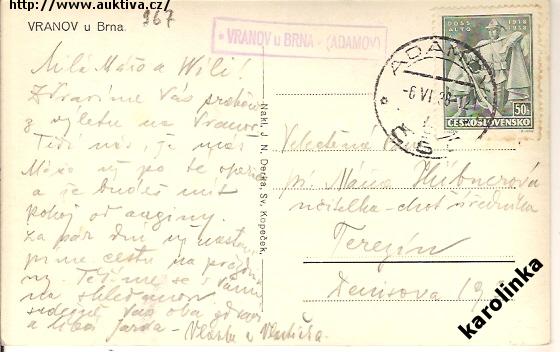 http://www.auktiva.cz/
VRANOV u Brna
967
* VRANOV u BRNA - (ADAMOV)
DOSS ALTO
1918 1938
50 h
ČESKOSLOVENSKO
ADAMOV
-6.VI.38-12
Milá Mářo a Wili!
Zdravíme Vás
z výletu na Vranov
Těší nás, že máš
už po té operaci
a že budeš mít
pokoj od anginy.
Za pár dní už nastou-
píme cestu na prázdni-
ny. Těšíme se s Vámi
na shledanou
srdečně Vás oba zdraví
a líbá Jarda - Vlasta a Vlastička.
Nakl. J. N. Derka, Sv. Kopeček.
Velectěná
pí. Máňa Hübnerová
učitelka - choť úředníka
Terezín
Denisova 19
karolinka